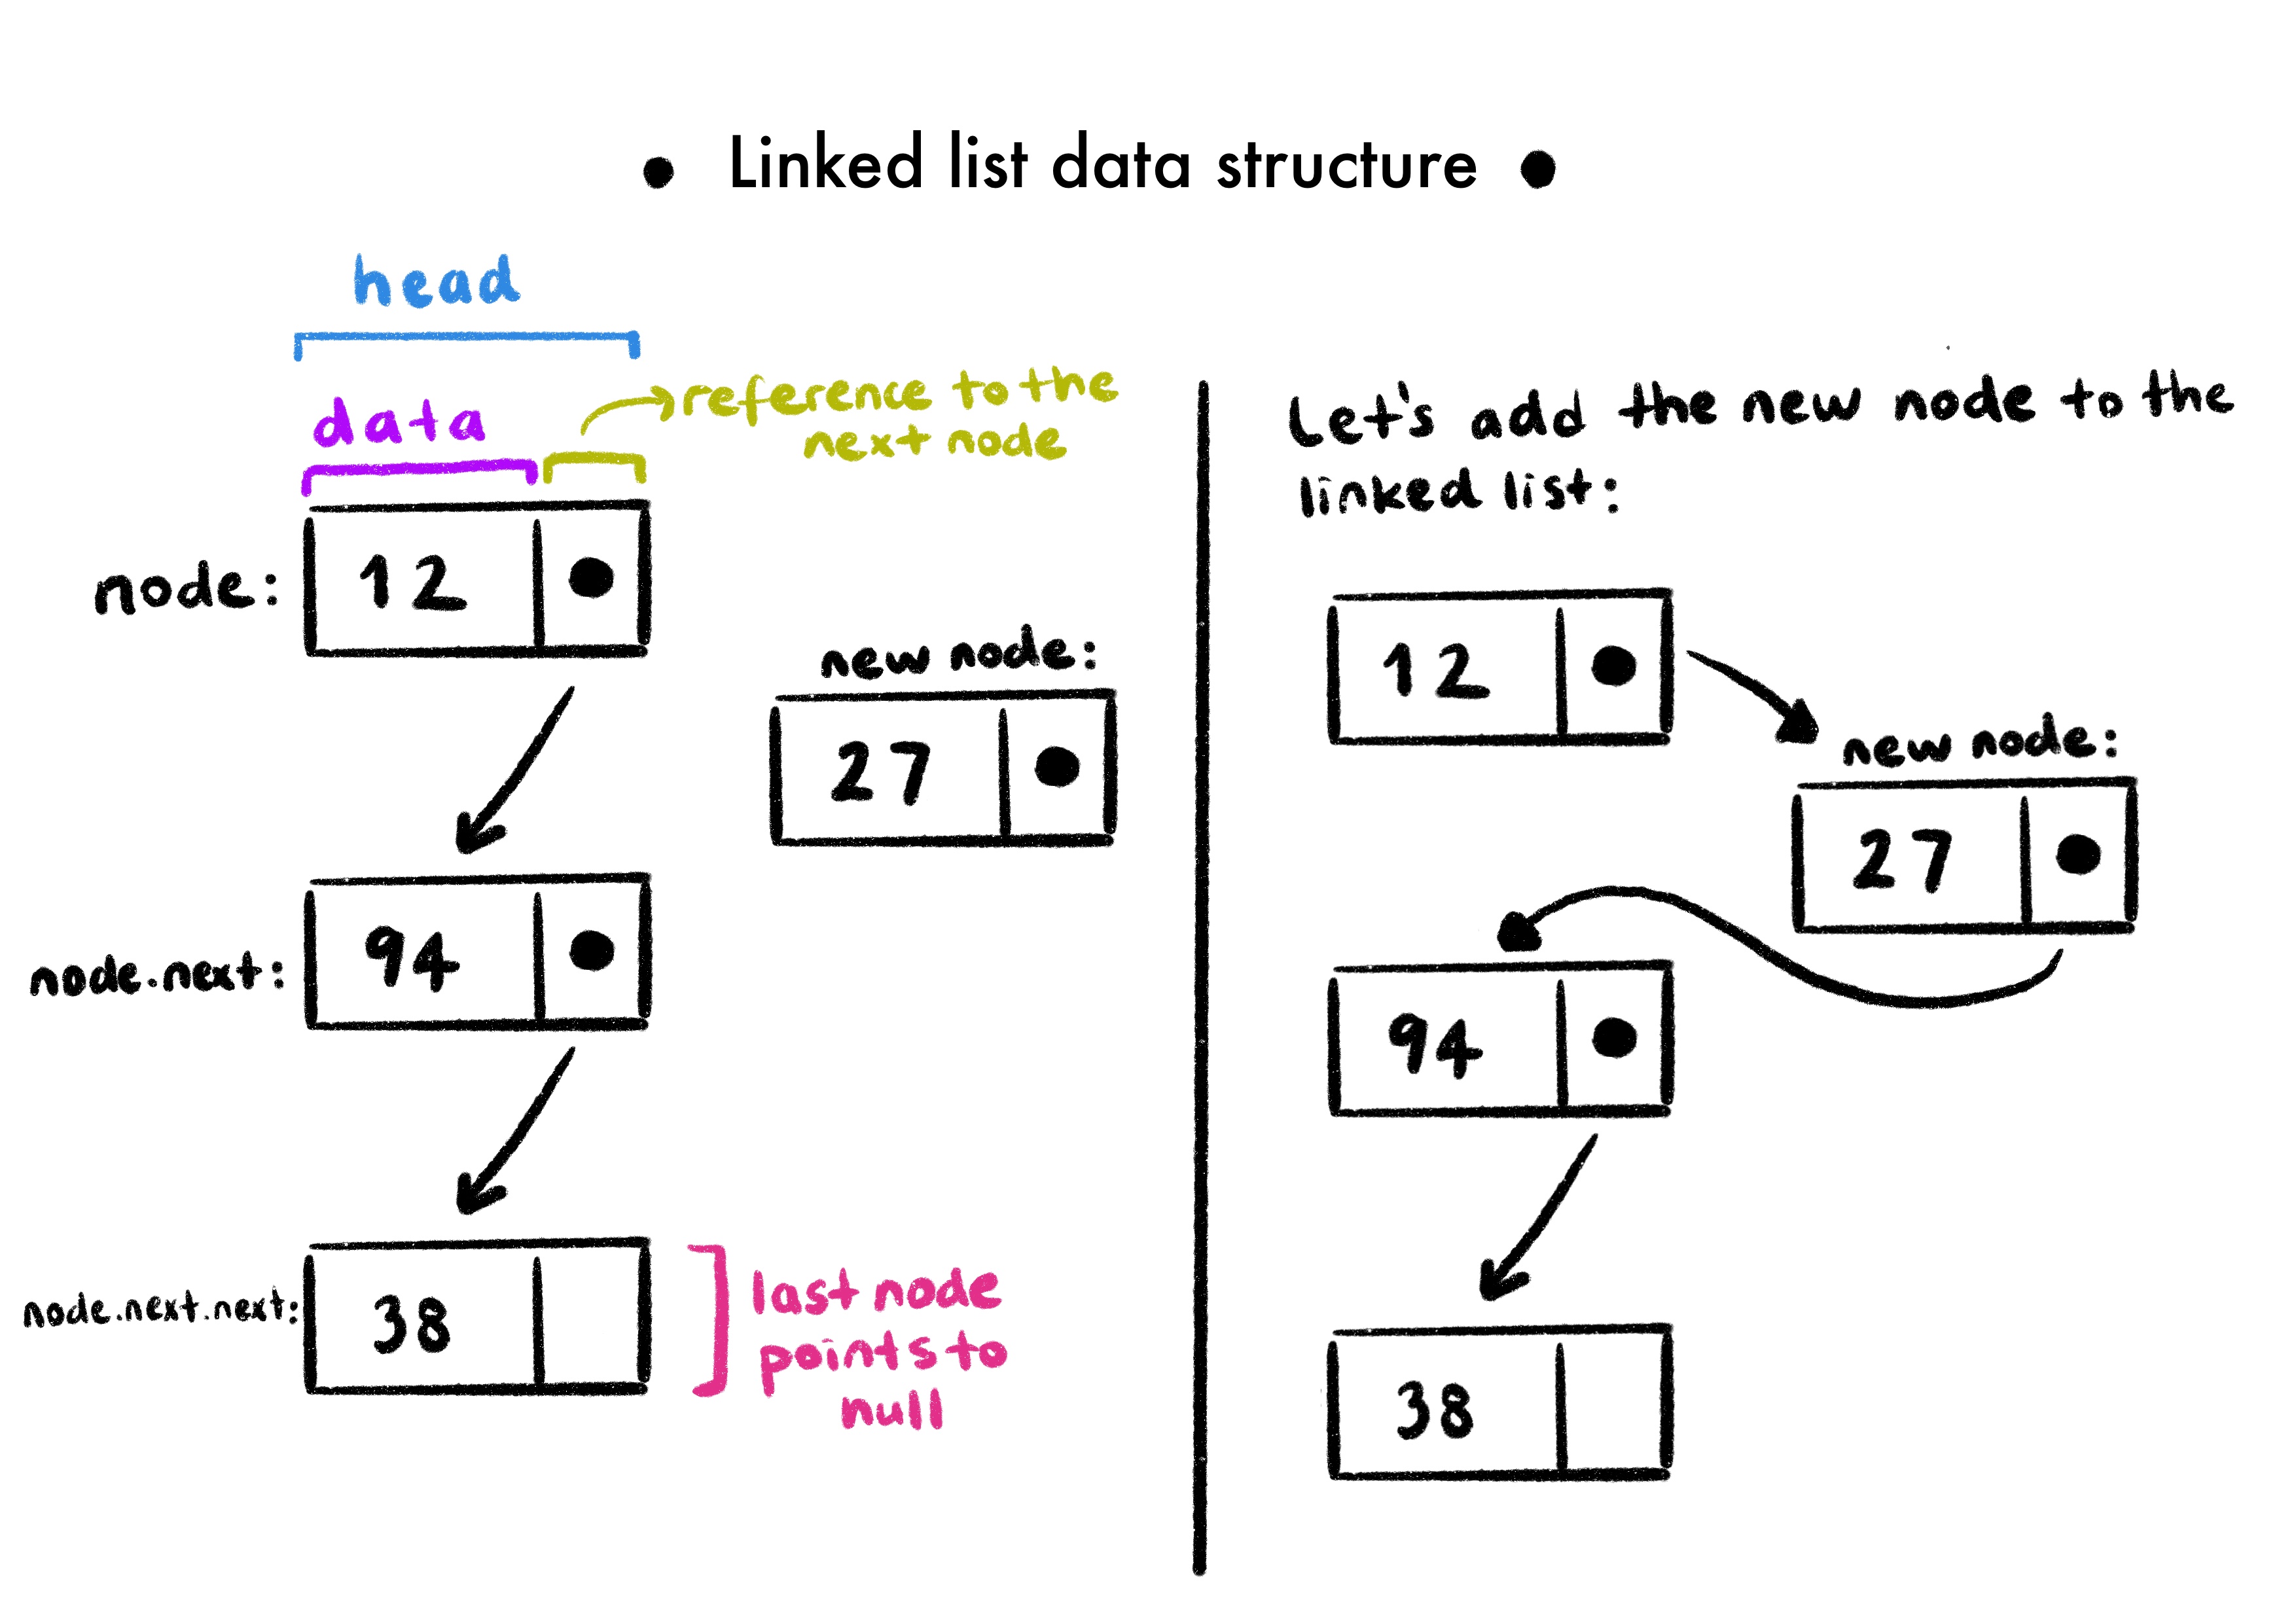 • Linked list data structure •
head
data
reference to the
next node
node:
12
new node:
27
node.next:
94
node.next.next:
38
last node
points to
null
Let's add the new node to the
linked list:
12
new node:
27
94
38